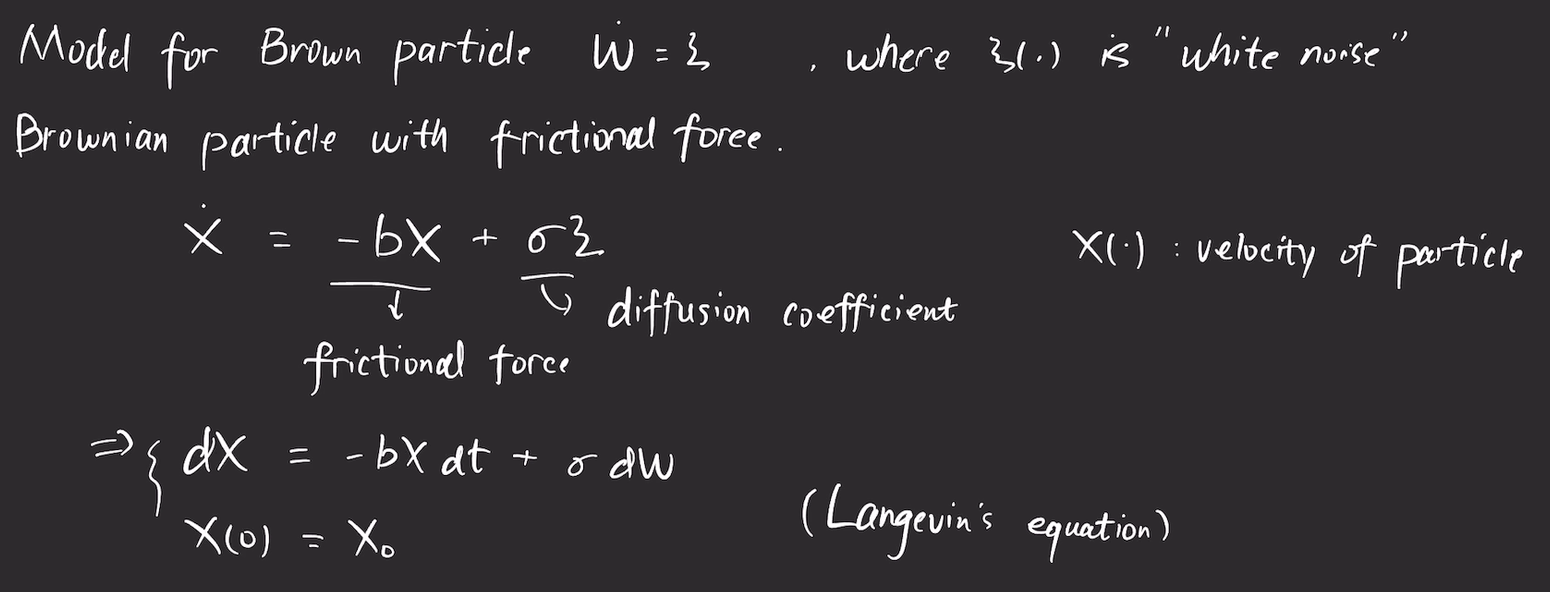 Model for Brown particle Ẇ = ξ , where ξ(·) is "white noise"
Brownian particle with frictional force.
Ẋ = -bX + σξ X(·) : velocity of particle
↓ ↪ diffusion coefficient
frictional force
⇒ { dX = -bX dt + σ dW
X(0) = X₀ (Langevin's equation)